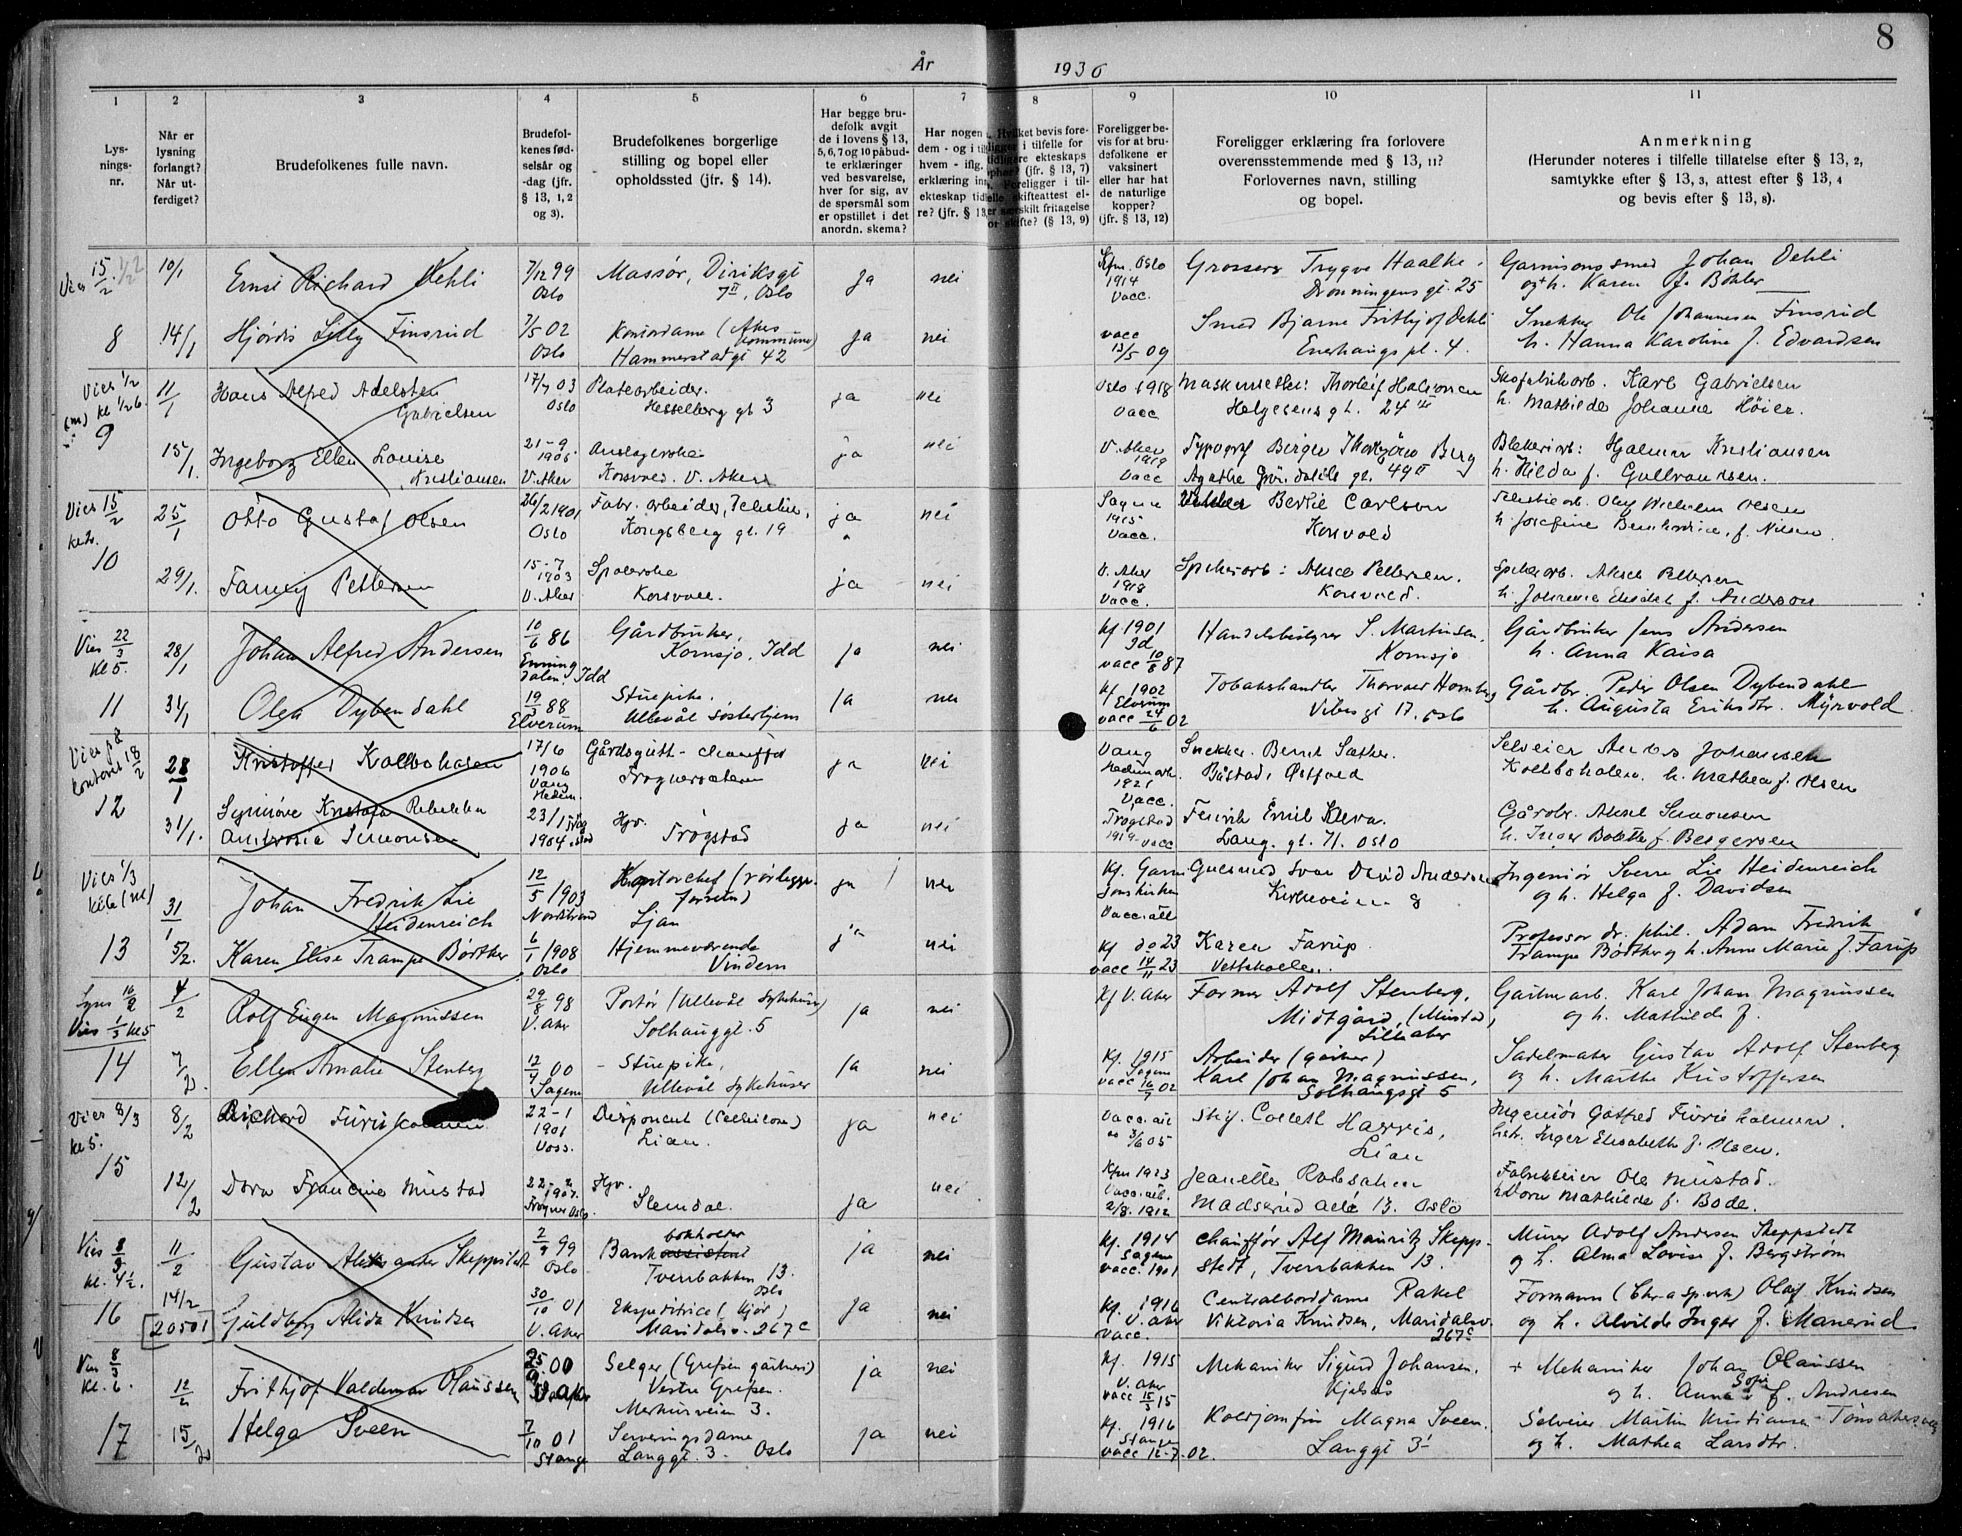 8
År 1930
1 2 3 4 5 6 7 8 9 10 11
Lys-
nings-
nr.
Når er
lysning
forlangt?
Når ut-
ferdiget?
Brudefolkenes fulle navn.
Brudefol-
kenes fød-
selsår og
-dag (jfr.
§ 13, 1, 2
og 3).
Brudefolkenes borgerlige
stilling og bopel eller
opholdssted (jfr. § 14).
Har begge bru-
defolk avgit
de i lovens § 13,
5, 6, 7 og 10 påbud-
te erklæringer
ved besvarelse,
hver for sig, av
de spørsmål som
er opstillet i det
anordn. skema?
Har nogen
dem - og i
hvem - iflg.
erklæring inn
ekteskap tid
re? (jfr. § 13
Hvilket bevis fore-
ligger i tilfelle for
tidligere ekteskaps
ophør? (jfr. § 13, 7)
Foreligger i til-
elle skifteattest el-
er særskilt fritagelse
or skifte? (§ 13, 9)
Foreligger be-
vis for at bru-
defolkene er
vaksinert
eller har hat
de naturlige
kopper?
(jfr. § 13, 12)
Foreligger erklæring fra forlovere
overensstemmende med § 13, 11?
Forlovernes navn, stilling
og bopel.
Anmerkning
(Herunder noteres i tilfelle tillatelse efter § 13, 2,
samtykke efter § 13, 3, attest efter § 13, 4
og bevis efter § 13, 8).
Vies 15/2 10/1 Ernst Richard Dehli 7/12 99 Oslo Massør, Diriksgt 7 II, Oslo ja nei Kfm. Oslo 1914 Vacc. Grosserer Trygve Haalke. Dronningens gt. 25 Garnisonssmed Johan Dehli og h. Karen f. Bøhler
8 14/1 Hjørdis Lilly Finsrud 7/5 02 Oslo Kontordame (Akers kommune) Hammerstadgt 42 ja nei vacc 13/5 09 Smed Bjarne Frithjof Dehli Enerhaugs pl. 4. Snekker Ole Johannesen Finsrud h. Hanna Karoline f. Edvardsen
Vies 1/2 11/1 Hans Alfred Adelsten Gabrielsen 17/7 03 Oslo Platearbeider. Hesselberg gt 3 ja nei Oslo 1918 Vacc Thorleif Halvorsen Helgesens gt. 24 Skofabrikarb. Karl Gabrielsen h. Mathilde Johanne Høier.
9 15/1. Ingeborg Ellen Louise Kristiansen 21-9 1905 V. Aker Korsvold. V. Aker ja nei V. Aker 1919 Vacc Typograf Birger Berg Agathe Grøndahls gt. 49 II Hjalmar Kristiansen h. Hilda f. Gulbrandsen.
Vies 15/2 25/1 Otto Gustaf Olsen 26/2 1901 Oslo Fabr. arbeider, Kongsberg gt. 19 ja nei Sagene 1915 Vacc. Bertie Carlson Korsvold Olaf Wilhelm Olsen h. Josefine f. Nilsen.
10 29/1. Fanny Pettersen 15-7 1903 V. Aker Spolerske Korsvoll. ja nei V. Aker 1918 Vacc. Spikerarb: Aksel Pettersen. Korsvold. Spikerarb. Aksel Pettersen h. Johanne Elisabet f. Anderson
Vies 22/3 kl 5. 28/1 Johan Alfred Andersen 10/6 86 Enningdalen, Idd Gårdbruker, Kornsjø, Idd ja nei kf 1901 Id vacc 10/8 87 Handelsbestyrer S. Martinsen, Kornsjø Gårdbruker Jens Andersen h. Anna Kaisa
11 31/1 Olga Dybendahl 19/3 88 Elverum Stuepike. Ullevål Søsterhjem ja nei kf 1902 Elverum vacc 24/6 02 Tobakshandler Thorvald Hornberg Vibesgt 17. Oslo Gårdbr. Peder Olsen Dybendahl h. Augusta Eriksdtr. Myrvold.
Vies på kontoret 18/2 28/1 Kristoffer Kolboholen 17/6 1906 Vang Hedm. Gårdsgutt - chauffør Frognersæteren ja nei Vang Hedmark 1921 Vacc. Snekker. Bernt Sæther. Båstad, Østfold Selveier Anders Johansen Kolboholen. h. Mathea f. Olsen
12 31/1. Synnøve Kristofa Rebekka Ambrosia Simonsen 23/1 1904 Hjv. Trøgstad ja nei Trøgstad 1919 vacc Fenrik Emil Kleva. Lang. gt. 71. Oslo Gårdbr. Aksel Simonsen h. Inger Bolette f. Bergersen
Vies 1/3 31/1 Johan Fredrik Lie Heidenreich 12/5 1903 Nordstrand Kontorchef (rørlegger forretn) Ljan ja nei Kf. Garnisonskirken Vacc. att Gullsmed Ivar David Andersen Kirkeveien 8 Ingeniør Sverre Lie Heidenreich og h. Helga f. Davidsen
13 5/2. Karen Elise Trampe Bødtker 6/1 1908 Oslo Hjemmeværende Vindern ja nei Kf do 23 vacc 14/11 23 Karen Farup. Vettakollen. Professor dr. phil. Adam Fredrik Trampe Bødtker og h. Anne Marie f. Farup
Lyses 16/2 Vies 1/3 kl 5 4/2 Rolf Eugen Magnussen 29/8 98 V. Aker Portør (Ullevål Sykehus) Solhauggt. 5 ja nei Kf V. Aker Former Adolf Stenberg, Midtgård, (Mustad, Lilleaker Gartnerarb. Karl Johan Magnussen og h. Mathilde f.
14 7/2. Ellen Amalie Stenberg 12/4 00 Sagene - Stuepike, Ullevål Sykehuser ja nei Kf. 1915 Sagene vacc 16/9 02 Arbeider (gartner) Karl Johan Magnussen, Solhaugsgt 5 Sadelmaker Gustav Adolf Stenberg og h. Marthe Kristoffersen
Vies 8/3 kl 5. 8/2 Richard Furuholmen 22-1 1901 Voss. Disponent Lian. ja nei Vacc. att 3/6 05 Colleth Harris, Lian Ingeniør Gotfred Furuholmen. Inger Elisabeth f. Olsen.
15 12/2 Dora Francine Mustad 22-2 1907. Frogner Oslo. Hjv. Slemdal. ja nei Kfm 1923 Vacc. att. 2/8. 1912 Jeanette Madserud allé 13. Oslo Fabrikeier Ole Mustad. h Dora Mathilde f. Bode.
Vies 8/3 kl. 4½. 11/2 Gustav Aleksander Skeppstedt 2/9 99 Oslo Bankassistent bokholder Tverrbakken 13. Oslo ja nei Kf. 1914 Sagene vacc. 1901 Chauffør Alf Mauritz Skeppstedt, Tverrbakken 13. Murer Adolf Andersen Skeppstedt og h. Alma Lovise f. Bergstrøm
16 14/2 [20501] Guldborg Alida Knudsen 30/10 01 V. Aker Ekspeditrice (Kjør) Maridalsv. 267c ja nei Kf. 1916 V. Aker vacc. Centralborddame Rakel Viktoria Knudsen, Maridalsv. 267c Formann (Chr-a Sp.verk) Olaf Knudsen og h. Alvilde Inger f. Manerud
Vies 8/3 kl. 6. 12/2 Frithjof Valdemar Olaussen 25/9 00 V. Aker Selger (Grefsen gartneri) Vestre Grefsen. Merkurveien 3. ja nei Kf. 1915 V. Aker vacc 15/3 15 Mekaniker Sigurd Johansen, Kjelsås + Mekaniker Johan Olaussen og h. Anna Sofie f. Andresen
17 15/2 Helga Sveen 7/10 01 Stange Serveringsdame Langgt. 3. Oslo ja nei Kf. 1916 Stange vacc 12-7. 02. Koldjomfru Magna Sveen. Langgt 3 Selveier Martin Kristiansen og h. Mathea Larsdtr.